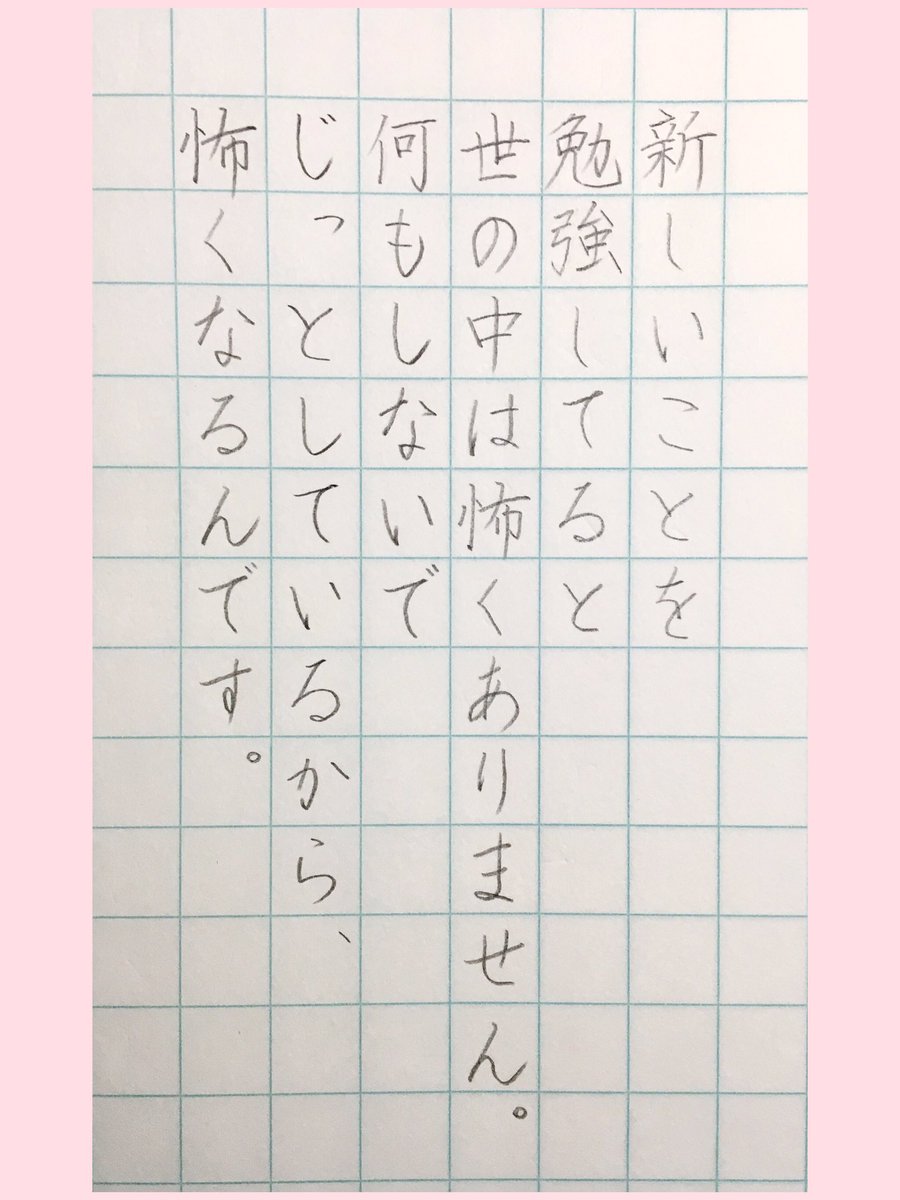 新しいことを
勉強してると
世の中は怖くありません。
何もしないで
じっとしているから、
怖くなるんです。